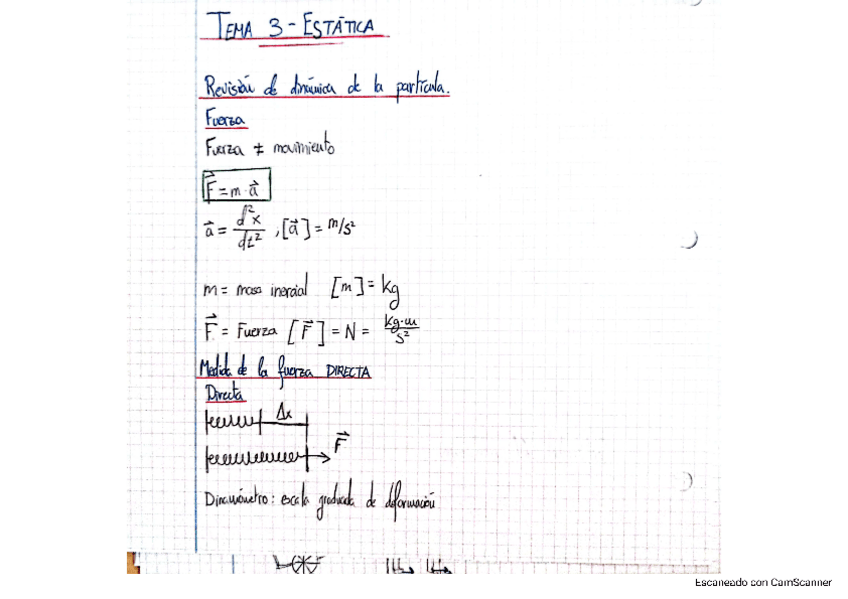 TEMA 3 - ESTÁTICA
Revisión de dinámica de la partícula.
Fuerza
Fuerza ≠ movimiento
F⃗ = m · a⃗
a⃗ = d²x/dt² , [a⃗] = m/s²
m = masa inercial [m] = kg
F⃗ = Fuerza [F⃗] = N = kg·m/s²
Medida de la fuerza DIRECTA
Directa
Δx
F⃗
Dinamómetro: escala graduada de deformación
Escaneado con CamScanner